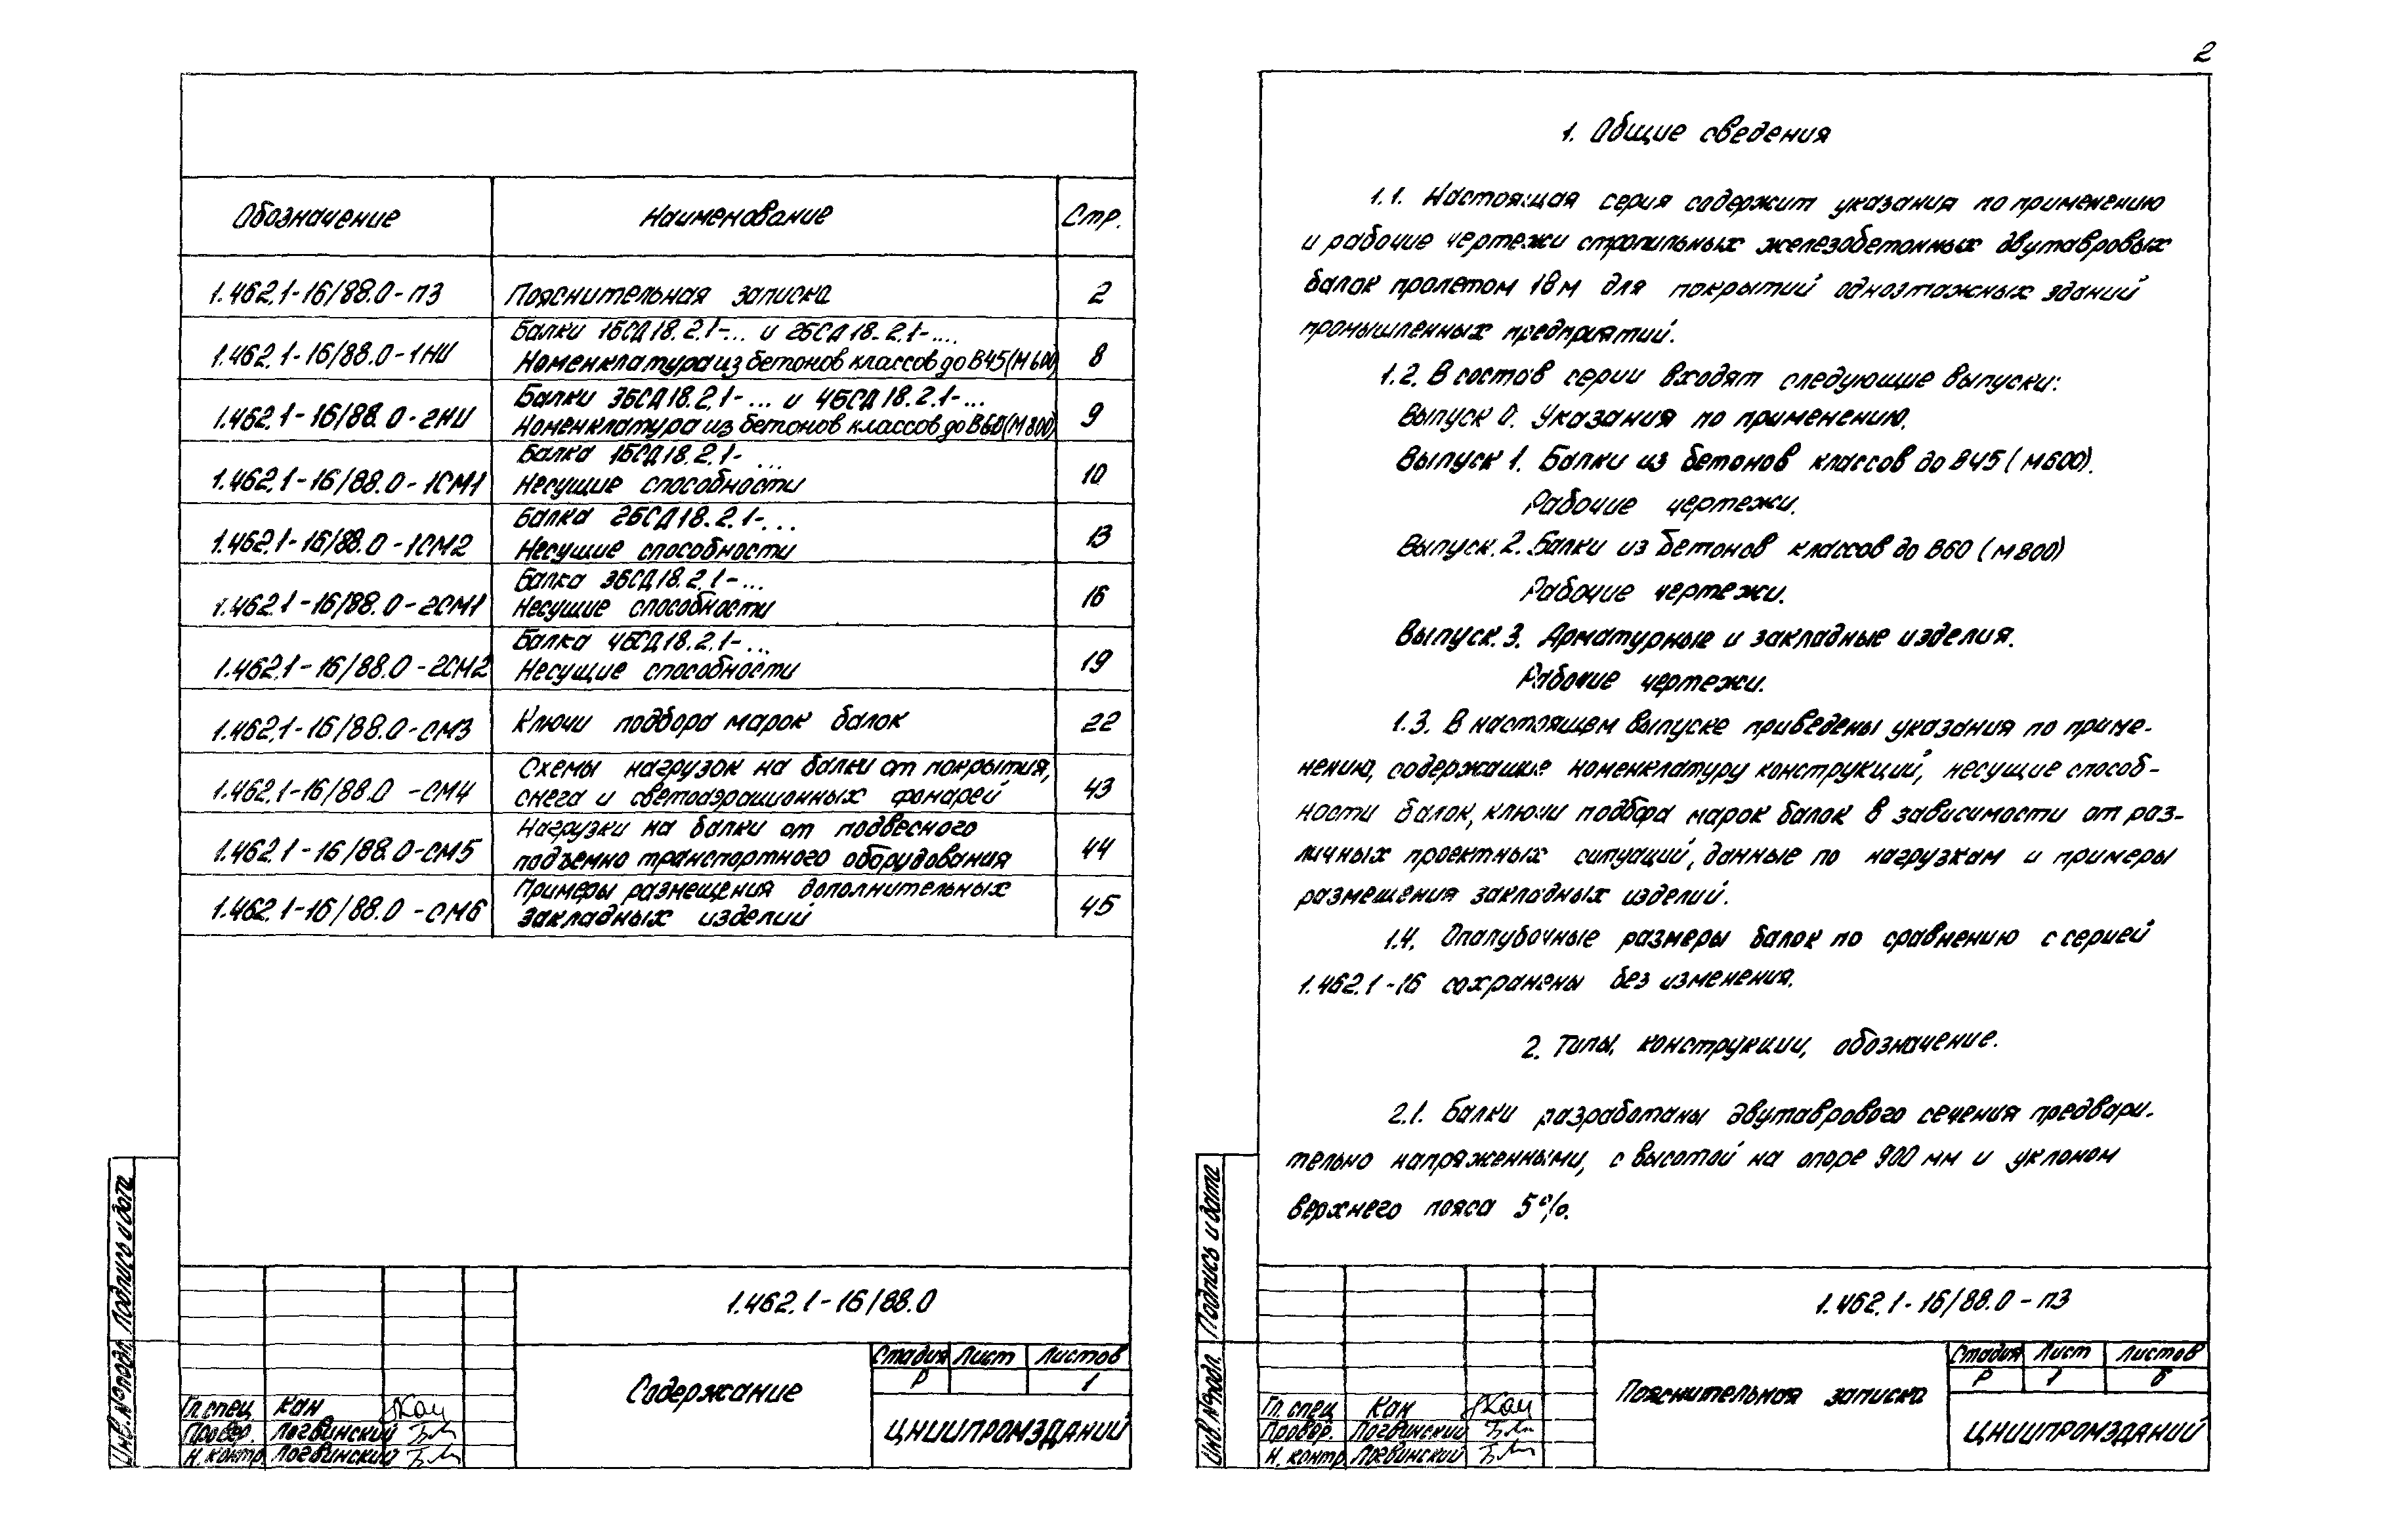 Обозначение Наименование Стр.
1.462.1-16/88.0-ПЗ Пояснительная записка 2
Балки 1БСД18.2.1-... и 2БСД18.2.1-....
1.462.1-16/88.0-1НИ Номенклатура из бетонов классов до В45(М600) 8
Балки 3БСД18.2.1-... и 4БСД18.2.1-...
1.462.1-16/88.0-2НИ Номенклатура из бетонов классов до В60(М800) 9
Балка 1БСД18.2.1- ...
1.462.1-16/88.0-1СМ1 Несущие способности 10
Балка 2БСД18.2.1-...
1.462.1-16/88.0-1СМ2 Несущие способности 13
Балка 3БСД18.2.1-...
1.462.1-16/88.0-2СМ1 Несущие способности 16
Балка 4БСД18.2.1-...
1.462.1-16/88.0-2СМ2 Несущие способности 19
1.462.1-16/88.0-СМ3 Ключи подбора марок балок 22
Схемы нагрузок на балки от покрытия,
1.462.1-16/88.0-СМ4 снега и светоаэрационных фонарей 43
Нагрузки на балки от подвесного
1.462.1-16/88.0-СМ5 подъемно транспортного оборудования 44
Примеры размещения дополнительных
1.462.1-16/88.0-СМ6 закладных изделий 45
Инв.№подл. Подпись и дата
1.462.1-16/88.0
Содержание
Стадия Лист Листов
Р 1
ЦНИИПРОМЗДАНИЙ
Гл.спец Кан
Провер. Логвинский
Н.контр Логвинский
2
1. Общие сведения
1.1. Настоящая серия содержит указания по применению
и рабочие чертежи стропильных железобетонных двутавровых
балок пролетом 18м для покрытий одноэтажных зданий
промышленных предприятий.
1.2. В состав серии входят следующие выпуски:
Выпуск 0. Указания по применению.
Выпуск 1. Балки из бетонов классов до В45 (М600).
Рабочие чертежи.
Выпуск.2. Балки из бетонов классов до В60 (М800)
Рабочие чертежи.
Выпуск.3. Арматурные и закладные изделия.
Рабочие чертежи.
1.3. В настоящем выпуске приведены указания по приме-
нению, содержащие номенклатуру конструкций, несущие способ-
ности балок, ключи подбора марок балок в зависимости от раз-
личных проектных ситуаций, данные по нагрузкам и примеры
размещения закладных изделий.
1.4. Опалубочные размеры балок по сравнению с серией
1.462.1-16 сохранены без изменения.
2. Типы, конструкции, обозначение.
2.1. Балки разработаны двутаврового сечения предвари-
тельно напряженными, с высотой на опоре 900 мм и уклоном
верхнего пояса 5%.
Инв.№подл. Подпись и дата
1.462.1-16/88.0-ПЗ
Пояснительная записка
Стадия Лист Листов
Р 1 6
ЦНИИПРОМЗДАНИЙ
Гл.спец Кан
Провер. Логвинский
Н.контр Логвинский